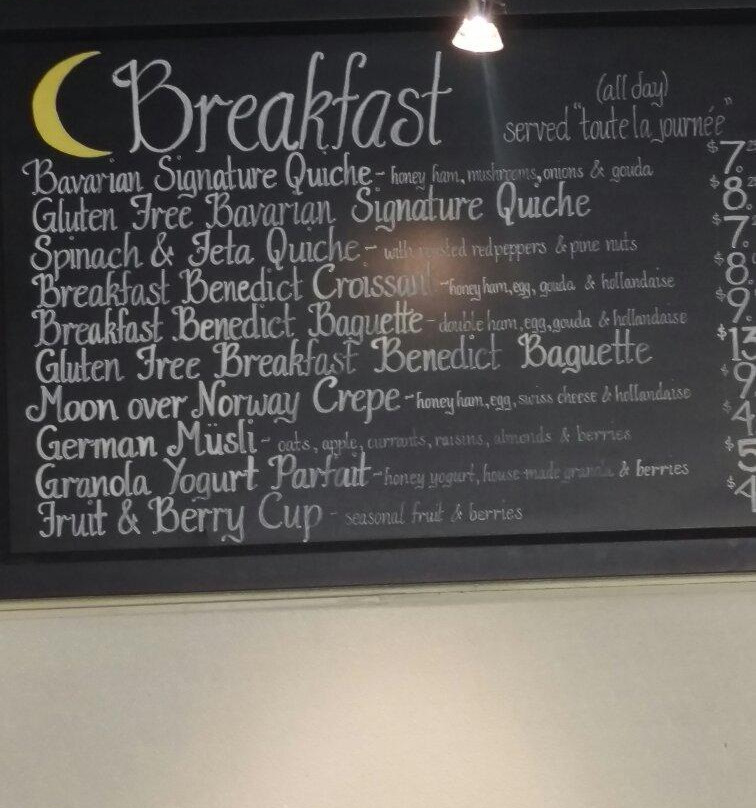 Breakfast
(all day)
served "toute la journée"
Bavarian Signature Quiche - honey ham, mushrooms, onions & gouda $7.25
Gluten Free Bavarian Signature Quiche $8.25
Spinach & Feta Quiche - with roasted red peppers & pine nuts $7.
Breakfast Benedict Croissant - honey ham, egg, gouda & hollandaise $8.
Breakfast Benedict Baguette - double ham, egg, gouda & hollandaise $9.
Gluten Free Breakfast Benedict Baguette $13
Moon over Norway Crepe - honey ham, egg, swiss cheese & hollandaise $9
German Müsli - oats, apple, currants, raisins, almonds & berries $4
Granola Yogurt Parfait - honey yogurt, house-made granola & berries $5
Fruit & Berry Cup - seasonal fruit & berries $4